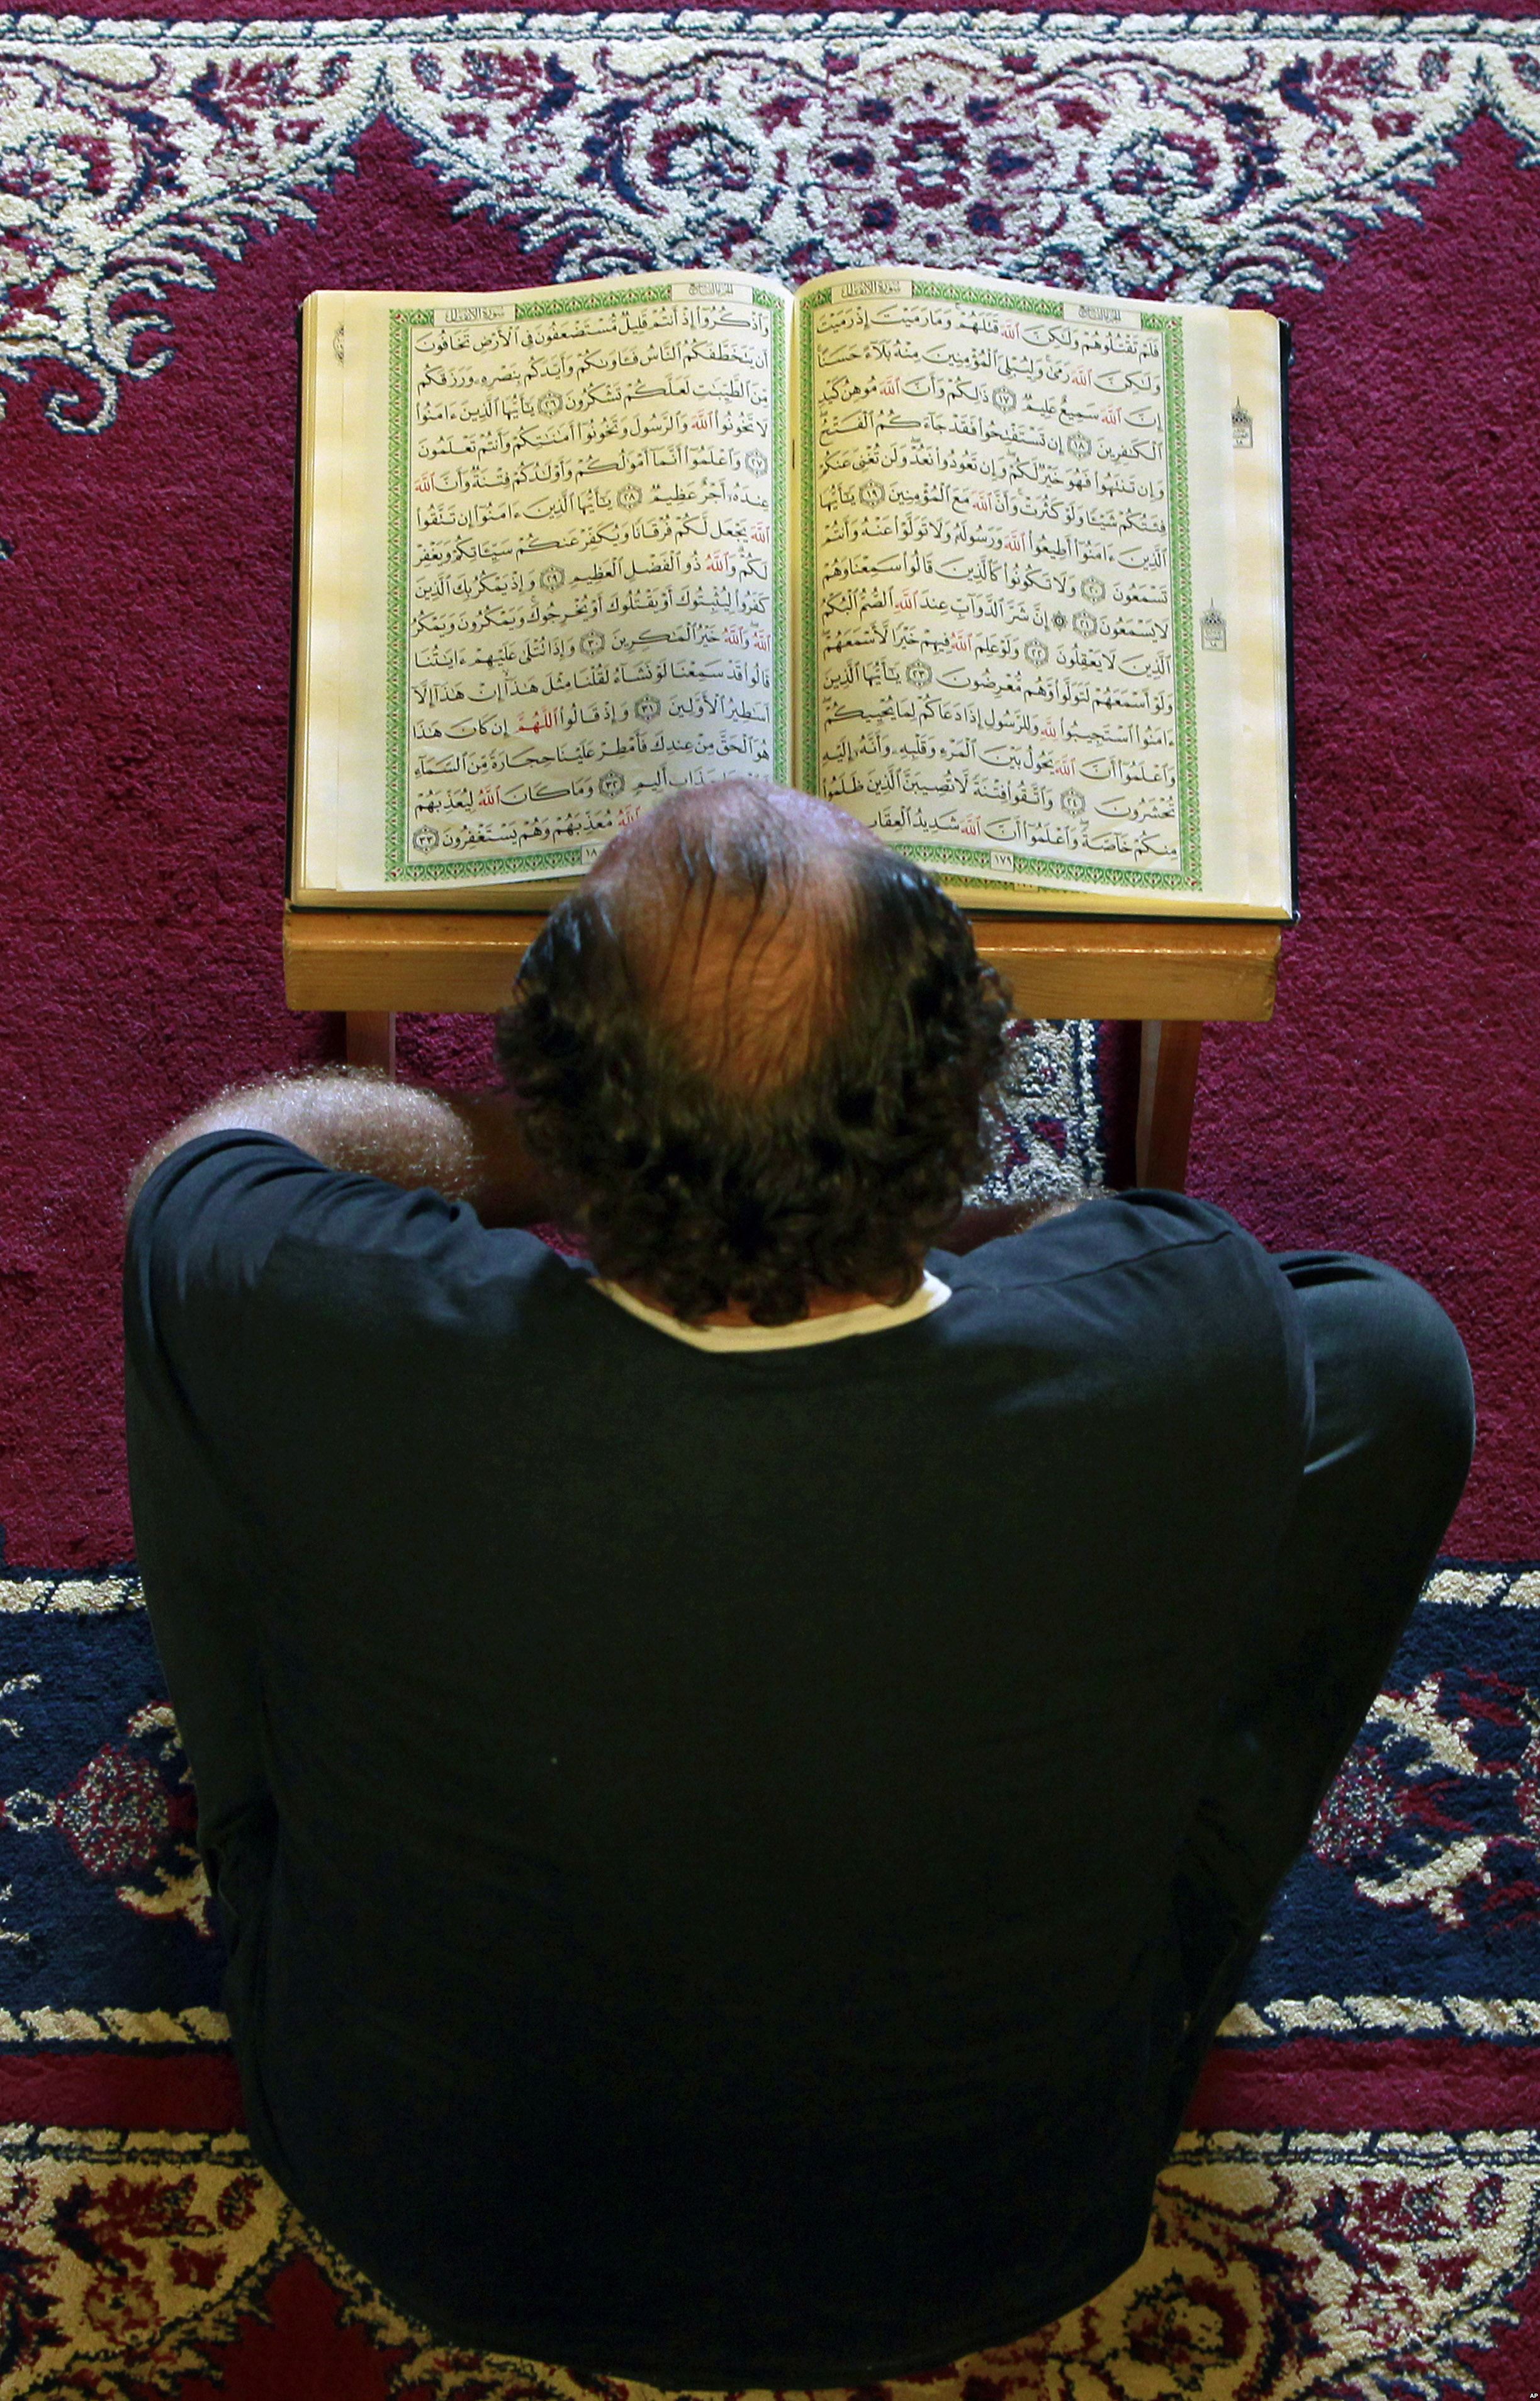 سورة الأنفال
الجزء التاسع
فَلَمْ تَقْتُلُوهُمْ وَلَٰكِنَّ ٱللَّهَ قَتَلَهُمْ وَمَا رَمَيْتَ إِذْ رَمَيْتَ
وَلَٰكِنَّ ٱللَّهَ رَمَىٰ وَلِيُبْلِىَ ٱلْمُؤْمِنِينَ مِنْهُ بَلَآءً حَسَنًا
إِنَّ ٱللَّهَ سَمِيعٌ عَلِيمٌ ١٧ ذَٰلِكُمْ وَأَنَّ ٱللَّهَ مُوهِنُ كَيْدِ
ٱلْكَٰفِرِينَ ١٨ إِن تَسْتَفْتِحُوا۟ فَقَدْ جَآءَكُمُ ٱلْفَتْحُ
وَإِن تَنتَهُوا۟ فَهُوَ خَيْرٌ لَّكُمْ وَإِن تَعُودُوا۟ نَعُدْ وَلَن تُغْنِىَ عَنكُمْ
فِئَتُكُمْ شَيْـًٔا وَلَوْ كَثُرَتْ وَأَنَّ ٱللَّهَ مَعَ ٱلْمُؤْمِنِينَ ١٩ يَٰٓأَيُّهَا
ٱلَّذِينَ ءَامَنُوٓا۟ أَطِيعُوا۟ ٱللَّهَ وَرَسُولَهُۥ وَلَا تَوَلَّوْا۟ عَنْهُ وَأَنتُمْ
تَسْمَعُونَ ٢٠ وَلَا تَكُونُوا۟ كَٱلَّذِينَ قَالُوا۟ سَمِعْنَا وَهُمْ
لَا يَسْمَعُونَ ٢١ ۞ إِنَّ شَرَّ ٱلدَّوَآبِّ عِندَ ٱللَّهِ ٱلصُّمُّ ٱلْبُكْمُ
ٱلَّذِينَ لَا يَعْقِلُونَ ٢٢ وَلَوْ عَلِمَ ٱللَّهُ فِيهِمْ خَيْرًا لَّأَسْمَعَهُمْ
وَلَوْ أَسْمَعَهُمْ لَتَوَلَّوا۟ وَّهُم مُّعْرِضُونَ ٢٣ يَٰٓأَيُّهَا ٱلَّذِينَ
ءَامَنُوا۟ ٱسْتَجِيبُوا۟ لِلَّهِ وَلِلرَّسُولِ إِذَا دَعَاكُمْ لِمَا يُحْيِيكُمْ
وَٱعْلَمُوٓا۟ أَنَّ ٱللَّهَ يَحُولُ بَيْنَ ٱلْمَرْءِ وَقَلْبِهِۦ وَأَنَّهُۥٓ إِلَيْهِ
تُحْشَرُونَ ٢٤ وَٱتَّقُوا۟ فِتْنَةً لَّا تُصِيبَنَّ ٱلَّذِينَ ظَلَمُوا۟
مِنكُمْ خَآصَّةً وَٱعْلَمُوٓا۟ أَنَّ ٱللَّهَ شَدِيدُ ٱلْعِقَابِ
١٧٩
الجزء التاسع
سورة الأنفال
وَٱذْكُرُوٓا۟ إِذْ أَنتُمْ قَلِيلٌ مُّسْتَضْعَفُونَ فِى ٱلْأَرْضِ تَخَافُونَ
أَن يَتَخَطَّفَكُمُ ٱلنَّاسُ فَـَٔاوَىٰكُمْ وَأَيَّدَكُم بِنَصْرِهِۦ وَرَزَقَكُم
مِّنَ ٱلطَّيِّبَٰتِ لَعَلَّكُمْ تَشْكُرُونَ ٢٦ يَٰٓأَيُّهَا ٱلَّذِينَ ءَامَنُوا۟
لَا تَخُونُوا۟ ٱللَّهَ وَٱلرَّسُولَ وَتَخُونُوٓا۟ أَمَٰنَٰتِكُمْ وَأَنتُمْ تَعْلَمُونَ
٢٧ وَٱعْلَمُوٓا۟ أَنَّمَآ أَمْوَٰلُكُمْ وَأَوْلَٰدُكُمْ فِتْنَةٌ وَأَنَّ ٱللَّهَ
عِندَهُۥٓ أَجْرٌ عَظِيمٌ ٢٨ يَٰٓأَيُّهَا ٱلَّذِينَ ءَامَنُوٓا۟ إِن تَتَّقُوا۟
ٱللَّهَ يَجْعَل لَّكُمْ فُرْقَانًا وَيُكَفِّرْ عَنكُمْ سَيِّـَٔاتِكُمْ وَيَغْفِرْ
لَكُمْ وَٱللَّهُ ذُو ٱلْفَضْلِ ٱلْعَظِيمِ ٢٩ وَإِذْ يَمْكُرُ بِكَ ٱلَّذِينَ
كَفَرُوا۟ لِيُثْبِتُوكَ أَوْ يَقْتُلُوكَ أَوْ يُخْرِجُوكَ وَيَمْكُرُونَ وَيَمْكُرُ
ٱللَّهُ وَٱللَّهُ خَيْرُ ٱلْمَٰكِرِينَ ٣٠ وَإِذَا تُتْلَىٰ عَلَيْهِمْ ءَايَٰتُنَا
قَالُوا۟ قَدْ سَمِعْنَا لَوْ نَشَآءُ لَقُلْنَا مِثْلَ هَٰذَآ إِنْ هَٰذَآ إِلَّآ
أَسَٰطِيرُ ٱلْأَوَّلِينَ ٣١ وَإِذْ قَالُوا۟ ٱللَّهُمَّ إِن كَانَ هَٰذَا
هُوَ ٱلْحَقَّ مِنْ عِندِكَ فَأَمْطِرْ عَلَيْنَا حِجَارَةً مِّنَ ٱلسَّمَآءِ
بِعَذَابٍ أَلِيمٍ ٣٢ وَمَا كَانَ ٱللَّهُ لِيُعَذِّبَهُمْ
ٱللَّهُ مُعَذِّبَهُمْ وَهُمْ يَسْتَغْفِرُونَ ٣٣
١٨